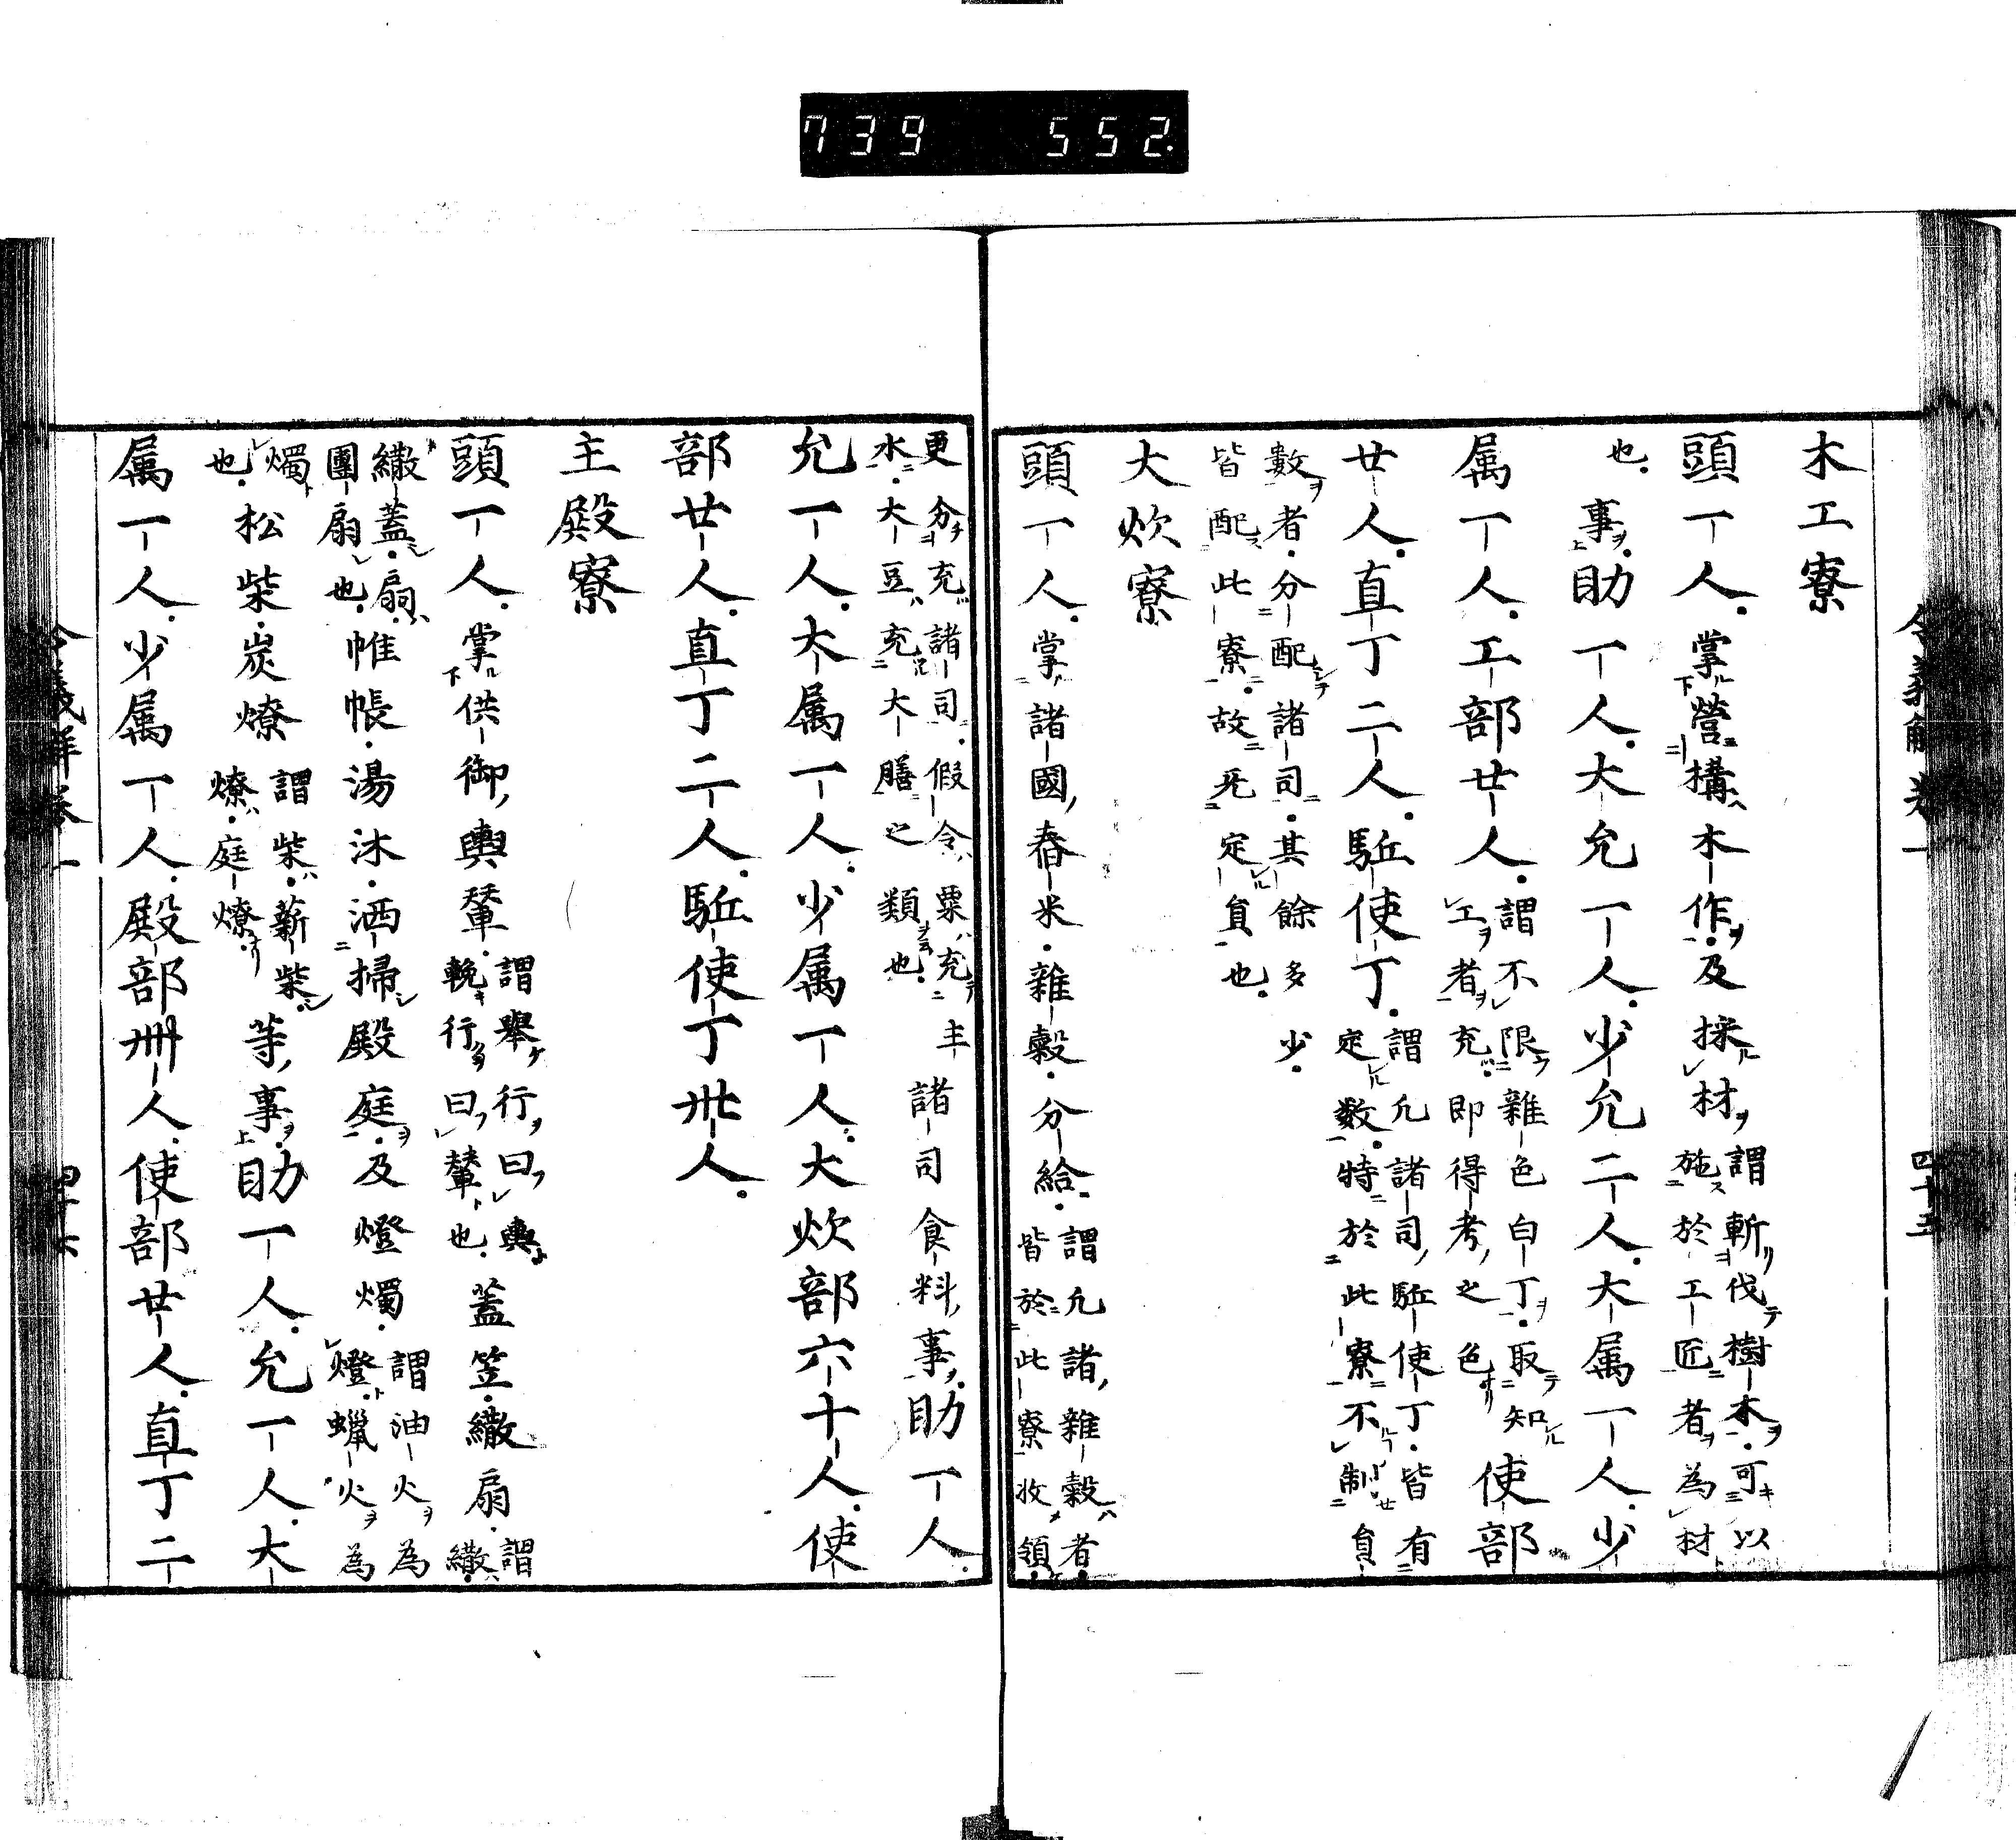 739 552
令義解卷一 四十五
木工寮
頭一人。掌營構木作。及採材謂斬伐樹木。可以施於工匠者為材
也。事。助一人。大允一人。少允二人。大属一人。少
属一人。工部廿人。謂不限雜色白丁。取知工者充。即得考之色使部
廿人。直丁二人。駈使丁。謂凡諸司駈使丁。皆有定数。特於此寮不制負
數者。分配諸司。其餘多少。皆配此寮。故旡定負也。
大炊寮
頭一人。掌諸國舂米。雜穀。分給。謂凡諸雜穀者。皆於此寮收領。
更分充諸司。假令粟充主水。大豆充大膳之類也。諸司食料事。助一人。
允一人。大属一人。少属一人。大炊部六十人。使
部廿人。直丁二人。駈使丁卅人。
主殿寮
頭一人。掌供御輿輦。謂舉行曰輿輓行曰輦也。蓋笠。繖扇。謂繖。
繖蓋。扇。團扇也。帷帳。湯沐。洒掃殿庭。及燈燭。謂油火為燈。蠟火為
燭也。松柴。炭燎謂柴。薪柴燎。庭燎。等事。助一人。允一人。大
属一人。少属一人。殿部卌人。使部廿人。直丁二
令義解卷一 四十六